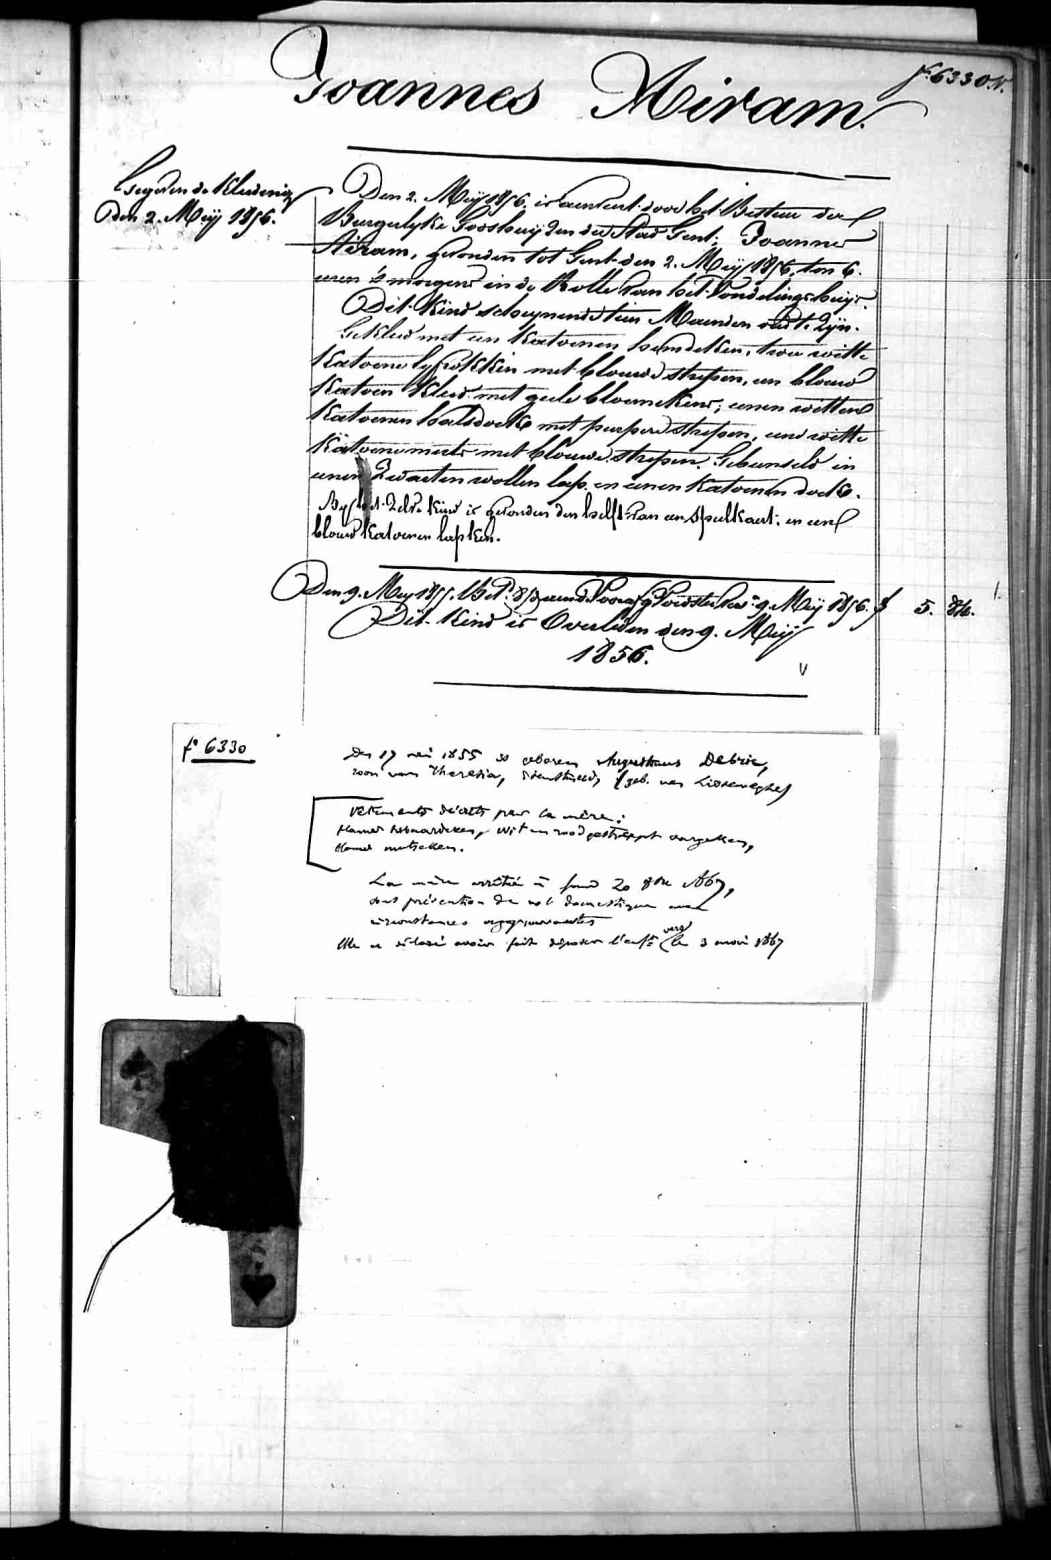 f° 6330 N.
Joannes Airam.
Gegeven de Kleederig
den 2. Meij 1856.
Den 2. Meij 1856. is aenveert door het Bestuer der
Burgerlyke Godshuijzen der Stad Gent; Joannes
Airam, gevonden tot Gent den 2. Meij 1856, ten 6.
uren 's morgens in de Rolle van het Vondelingshuijs.
Dit Kind schynende tien Maenden oud te Zijn.
Gekleed met een Katoenen hemdeken, twee witte
Katoene lyfrokken met blauwe strepen, een blauw
Katoen Kleed met geele bloemekens; eenen witten
Katoenen halsdoek met purpere strepen, eene witte
Katoene muts met blauwe strepen. Gebunseld in
eenen Zwarten wollen lap, en eenen Katoenen doek.
By het Zelve kind is gevonden den helft van een Speelkaart, en een
blauw Katoenen lapken.
Den 9. Mey 1855. Bet. 9. Meij 1856. f 5. 86.
Dit Kind is Overleden den 9. Meij
1856.
f° 6330
Den 17 mei 1855 is geboren Augustinus Debrie,
zoon van Theresia, dienstmeid, (geb. van Lisseweghe)
Vêtements décrits par la mère:
blauw, wit en rood gestreept
blauw mutseken.
La mère arrêtée à Gand 20 8bre 1867,
sous prévention de vol domestique avec
circonstances aggravantes
Elle a déclaré avoir fait déposer l'enft (vers le 3 mai 1867